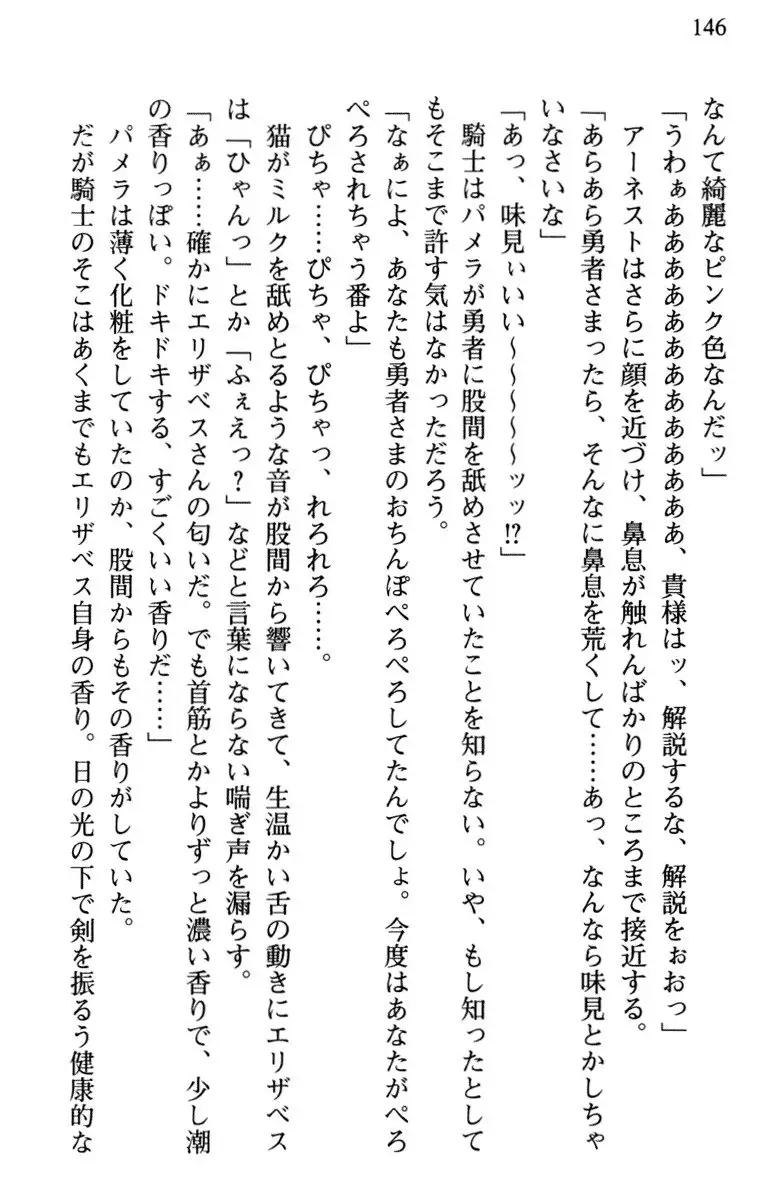 146
なんて綺麗なピンク色なんだッ」
「うわぁああああああああああああああ、貴様はッ、解説するな、解説をぉおっ」
アーネストはさらに顔を近づけ、鼻息が触れんばかりのところまで接近する。
「あらあら勇者さまったら、そんなに鼻息を荒くして……あっ、なんなら味見とかしちゃ
いなさいな」
「あっ、味見ぃいい～～～～～ッッ!?」
騎士はパメラが勇者に股間を舐めさせていたことを知らない。いや、もし知ったとして
もそこまで許す気はなかっただろう。
「なぁによ、あなたも勇者さまのおちんぽぺろぺろしてたんでしょ。今度はあなたがぺろ
ぺろされちゃう番よ」
ぴちゃ……ぴちゃ、ぴちゃっ、れろれろ……。
猫がミルクを舐めとるような音が股間から響いてきて、生温かい舌の動きにエリザベス
は「ひゃんっ」とか「ふぇえっ？」などと言葉にならない喘ぎ声を漏らす。
「あぁ……確かにエリザベスさんの匂いだ。でも首筋とかよりずっと濃い香りで、少し潮
の香りっぽい。ドキドキする、すごくいい香りだ……」
パメラは薄く化粧をしていたのか、股間からもその香りがしていた。
だが騎士のそこはあくまでもエリザベス自身の香り。日の光の下で剣を振るう健康的な